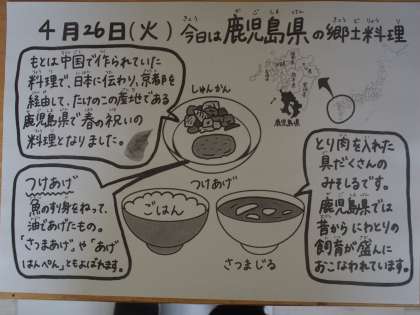 4月26日(火) 今日は鹿児島県の郷土料理
もとは中国で作られていた
料理で、日本に伝わり、京都を
経由して、たけのこ産地である
鹿児島県で春の祝いの
料理となりました。
しゅんかん
鹿児島県
つけあげ
つけあげ
魚のすり身をねって、
油であげたもの。
"さつまあげ"や"あげ
はんぺん"ともよばれます。
ごはん
さつまじる
とり肉を入れた
具だくさんの
みそしるです。
鹿児島県では
昔からにわとりの
飼育が盛んに
おこなわれています。